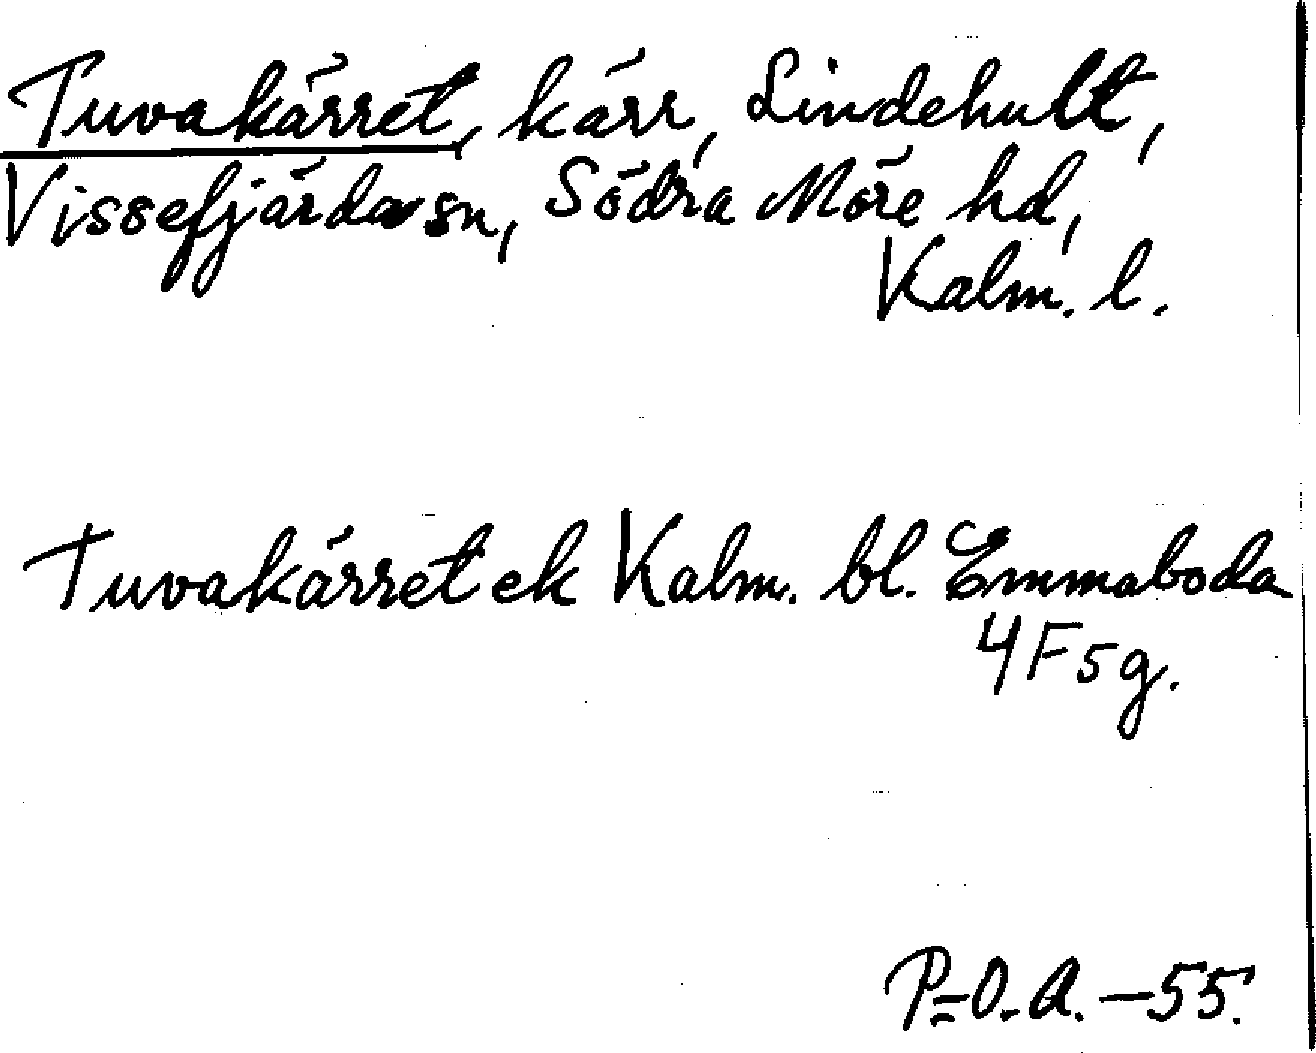 Tuvakärret, kärr, Lindehult,
Vissefjärda sn, Södra Möre hd,
Kalm. l.
Tuvakärret ek Kalm. bl. Emmaboda
4F5g.
P-O. A. - 55.